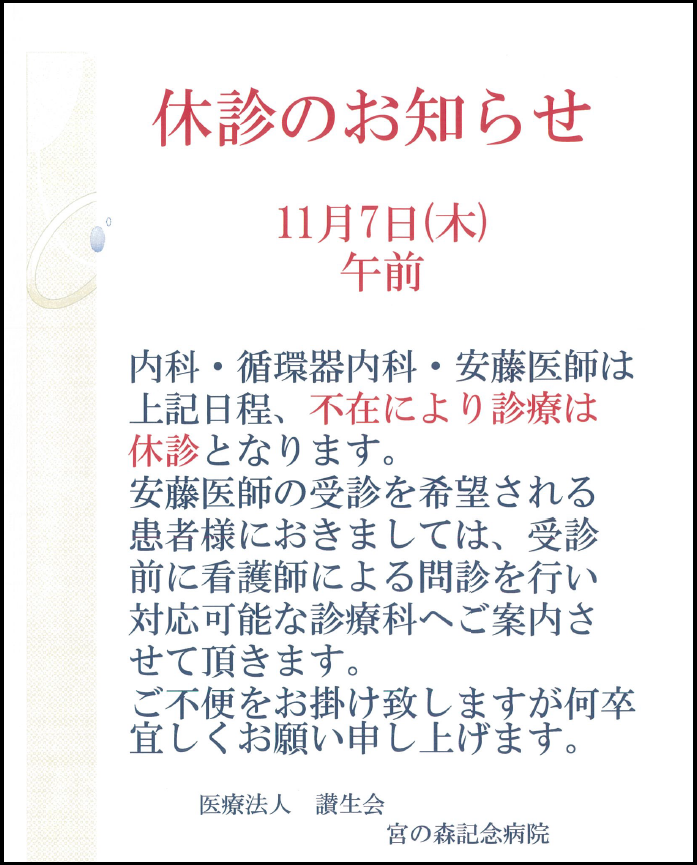 休診のお知らせ
11月7日(木)
午前
内科・循環器内科・安藤医師は
上記日程、不在により診療は
休診となります。
安藤医師の受診を希望される
患者様におきましては、受診
前に看護師による問診を行い
対応可能な診療科へご案内さ
せて頂きます。
ご不便をお掛け致しますが何卒
宜しくお願い申し上げます。
医療法人　讃生会
宮の森記念病院